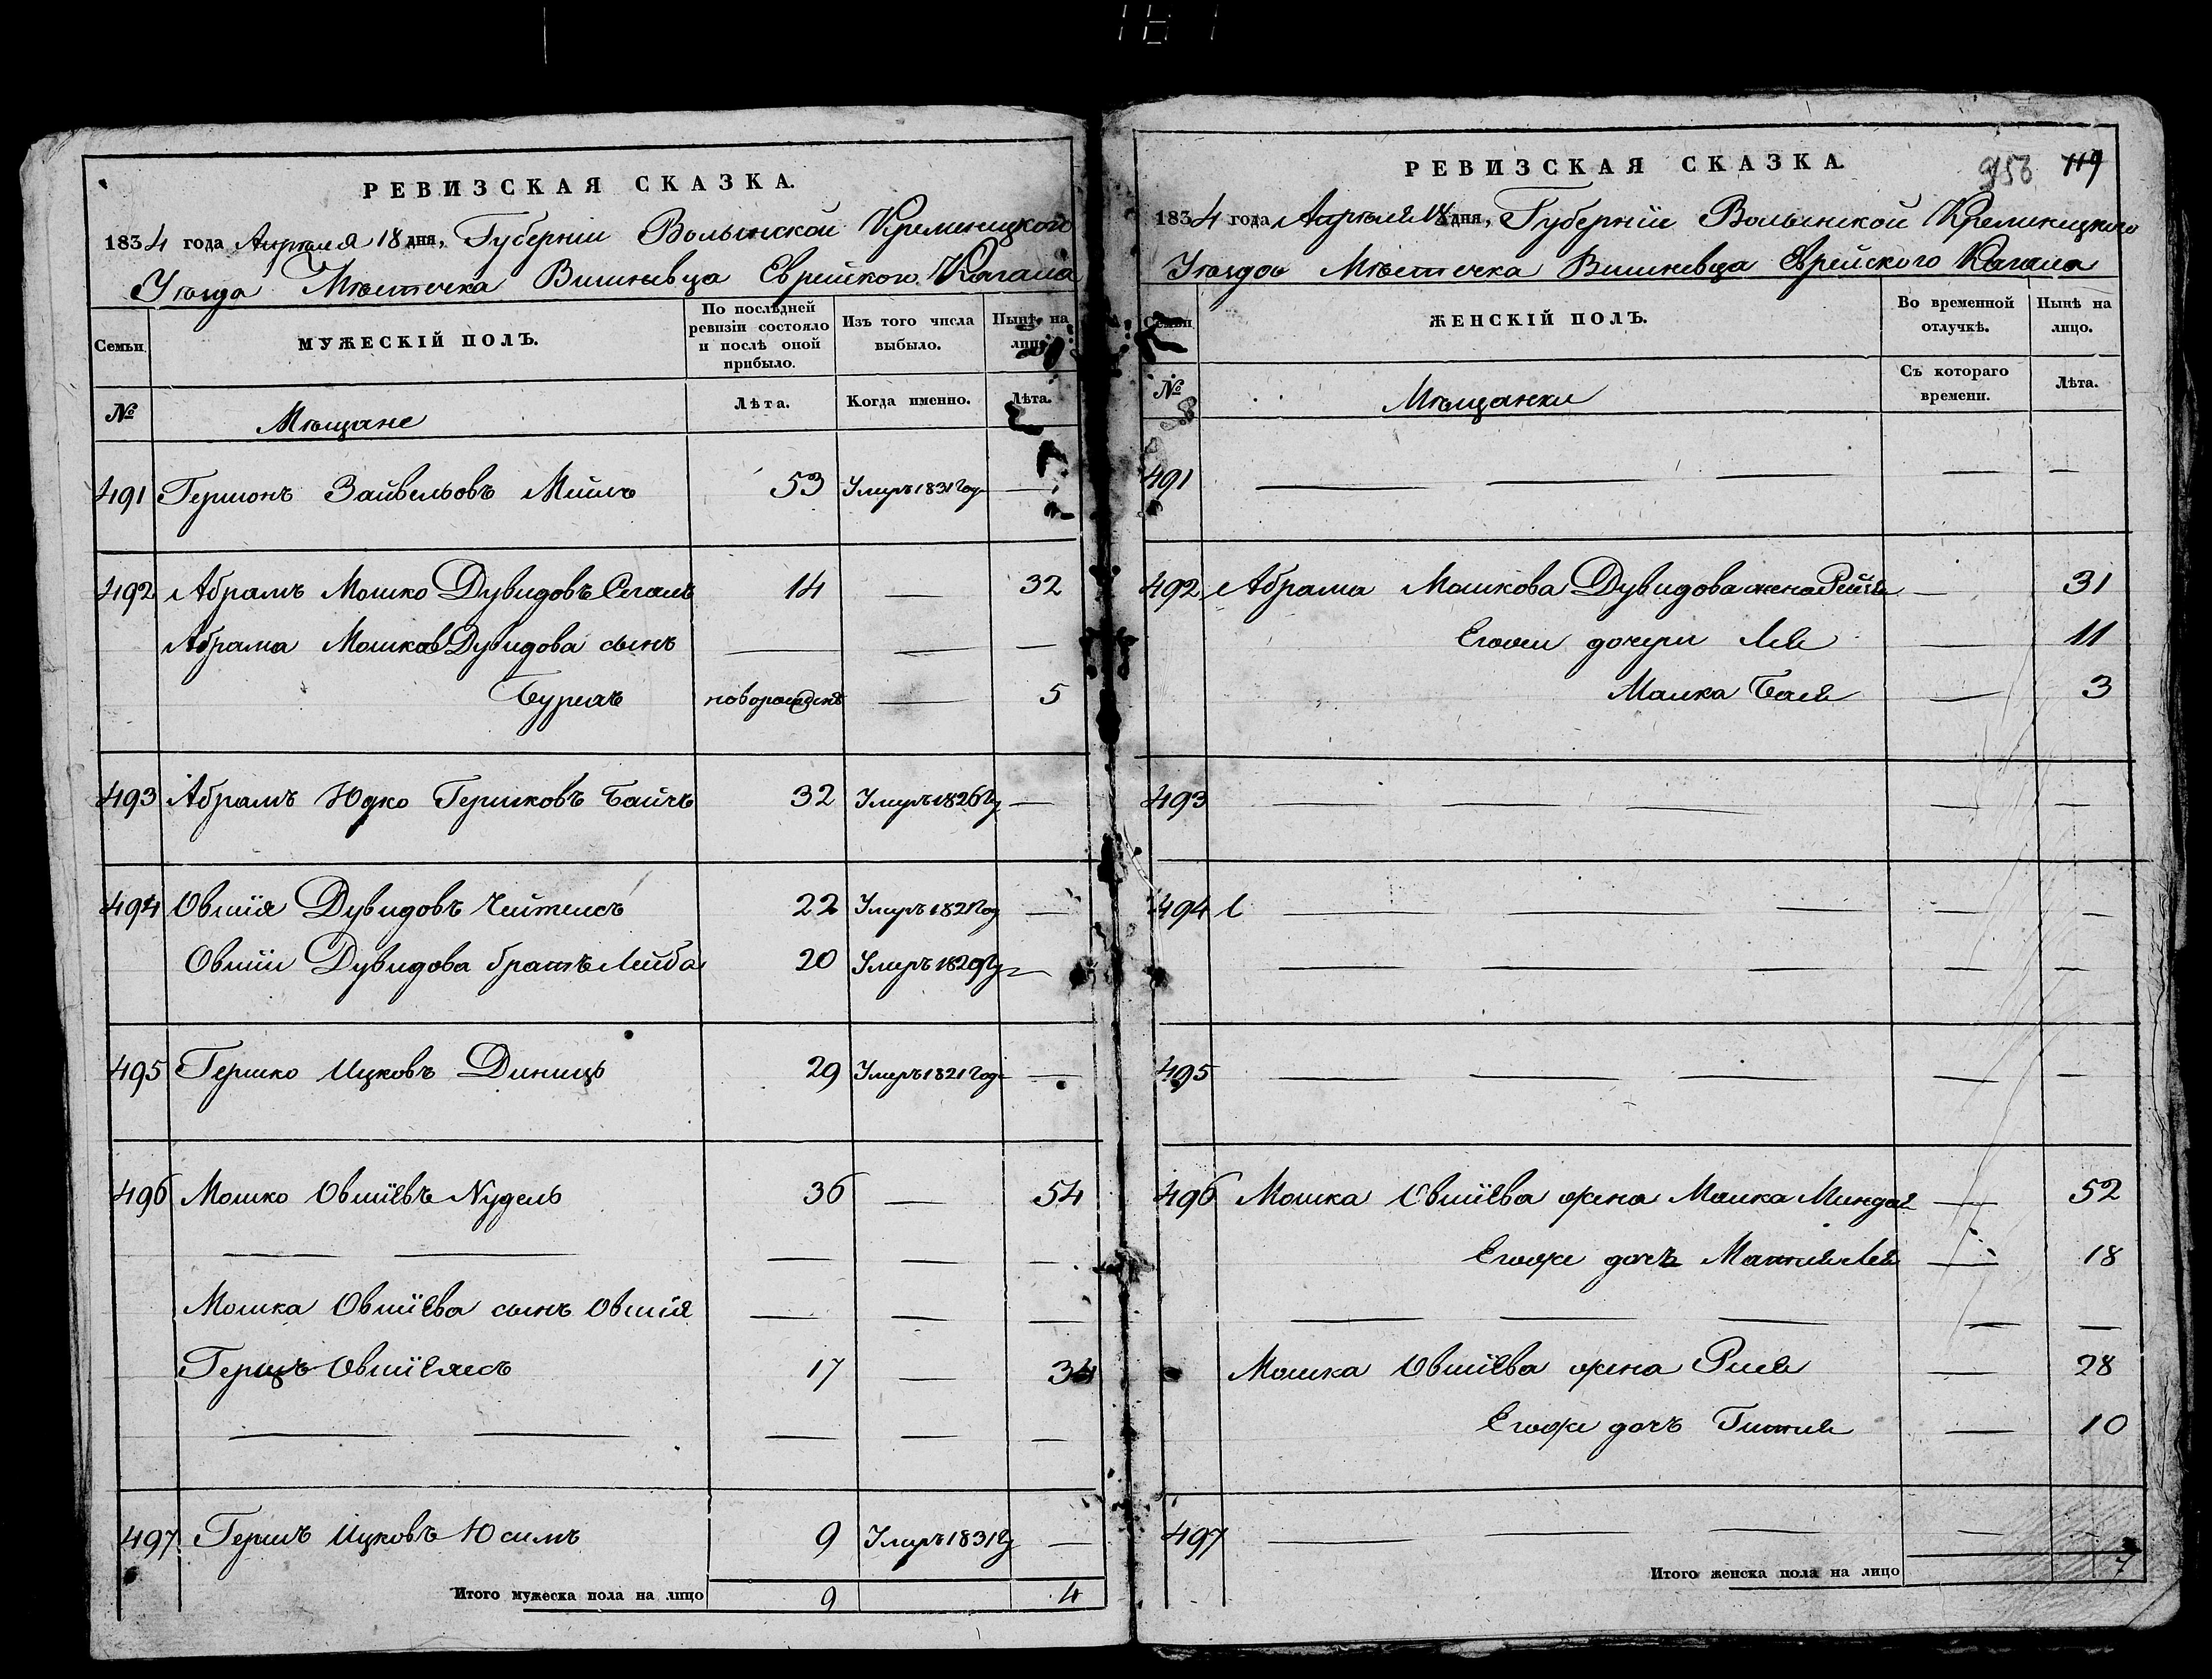 РЕВИЗСКАЯ СКАЗКА.
1834 года Апреля 18 дня, Губернiи Волынской Кременецкого
Уѣзда Мѣстечка Вишневца Еврейского Кагала
Семьи
МУЖЕСКІЙ ПОЛЪ.
По послѣдней ревизіи состояло и послѣ оной прибыло.
Изъ того числа выбыло.
Нынѣ на лицо
№
Мѣщане
Лѣта.
Когда именно.
Лѣта.
491 Гершонъ Зайвельовъ 53 Умеръ 1831 Год —
492 Абрамъ Мошко Дувидовъ Сегаль 14 — 32
Абрама Мошков Дувидова сынъ — — —
новорожденъ — 5
493 Абрамъ Юдко Гершковъ 32 Умеръ 1826 —
494 Овшiя Дувидовъ 22 Умеръ 182 год —
Овшiи Дувидова братъ Лейба 20 Умеръ 1829 —
495 Гершко Ицковъ 29 Умеръ 1821 Год —
496 Мошко Овшiевъ Nудель 36 — 54
— — — — —
Мошка Овшiева сынъ Овшiя — — —
Герцъ 17 — 34
— — — — —
497 Гершъ Ицковъ 9 Умеръ 1831 —
Итого мужеска пола на лицо 9 4
РЕВИЗСКАЯ СКАЗКА.
956 119
1834 года Апреля 18 дня, Губернiи Волынской Кременецкого
Уѣзда Мѣстечка Вишневца Еврейского Кагала
Семьи
ЖЕНСКІЙ ПОЛЪ.
Во временной отлучкѣ.
Нынѣ на лицо.
№
Мѣщанки
Съ котораго времени.
Лѣта.
491 — — — — —
492 Абрама Мошкова Дувидова жена Рейзя — 31
Егоже дочери Лея — 11
Малка Бася — 3
493 — — — — —
494 — — — — —
— — — — —
495 — — — — —
496 Мошка Овшiева жена Малка — 52
Егоже дочь — 18
— — — — —
Мошка Овшiева жена — 28
Егоже дочь Гитля — 10
497 — — — — —
Итого женска пола на лицо 7